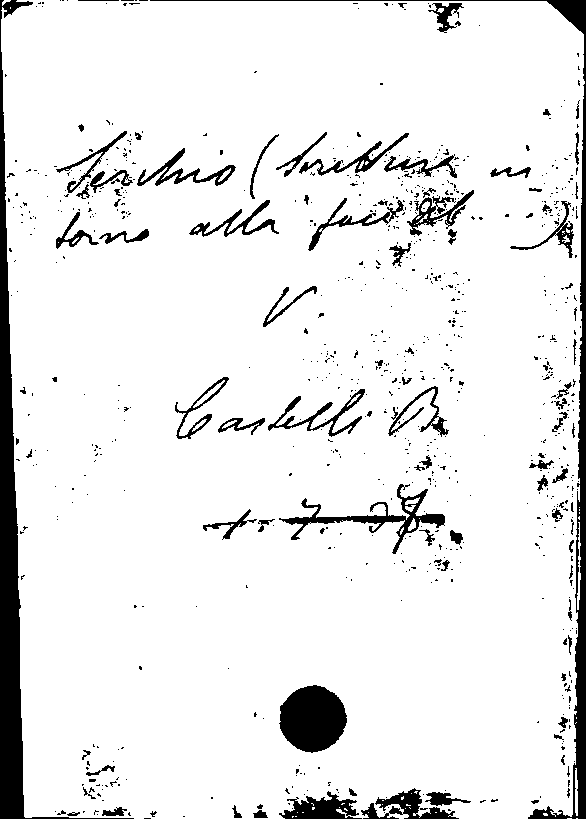 Serchio (Scrittura in
torno alla foce del.....)
V.
Castelli B.